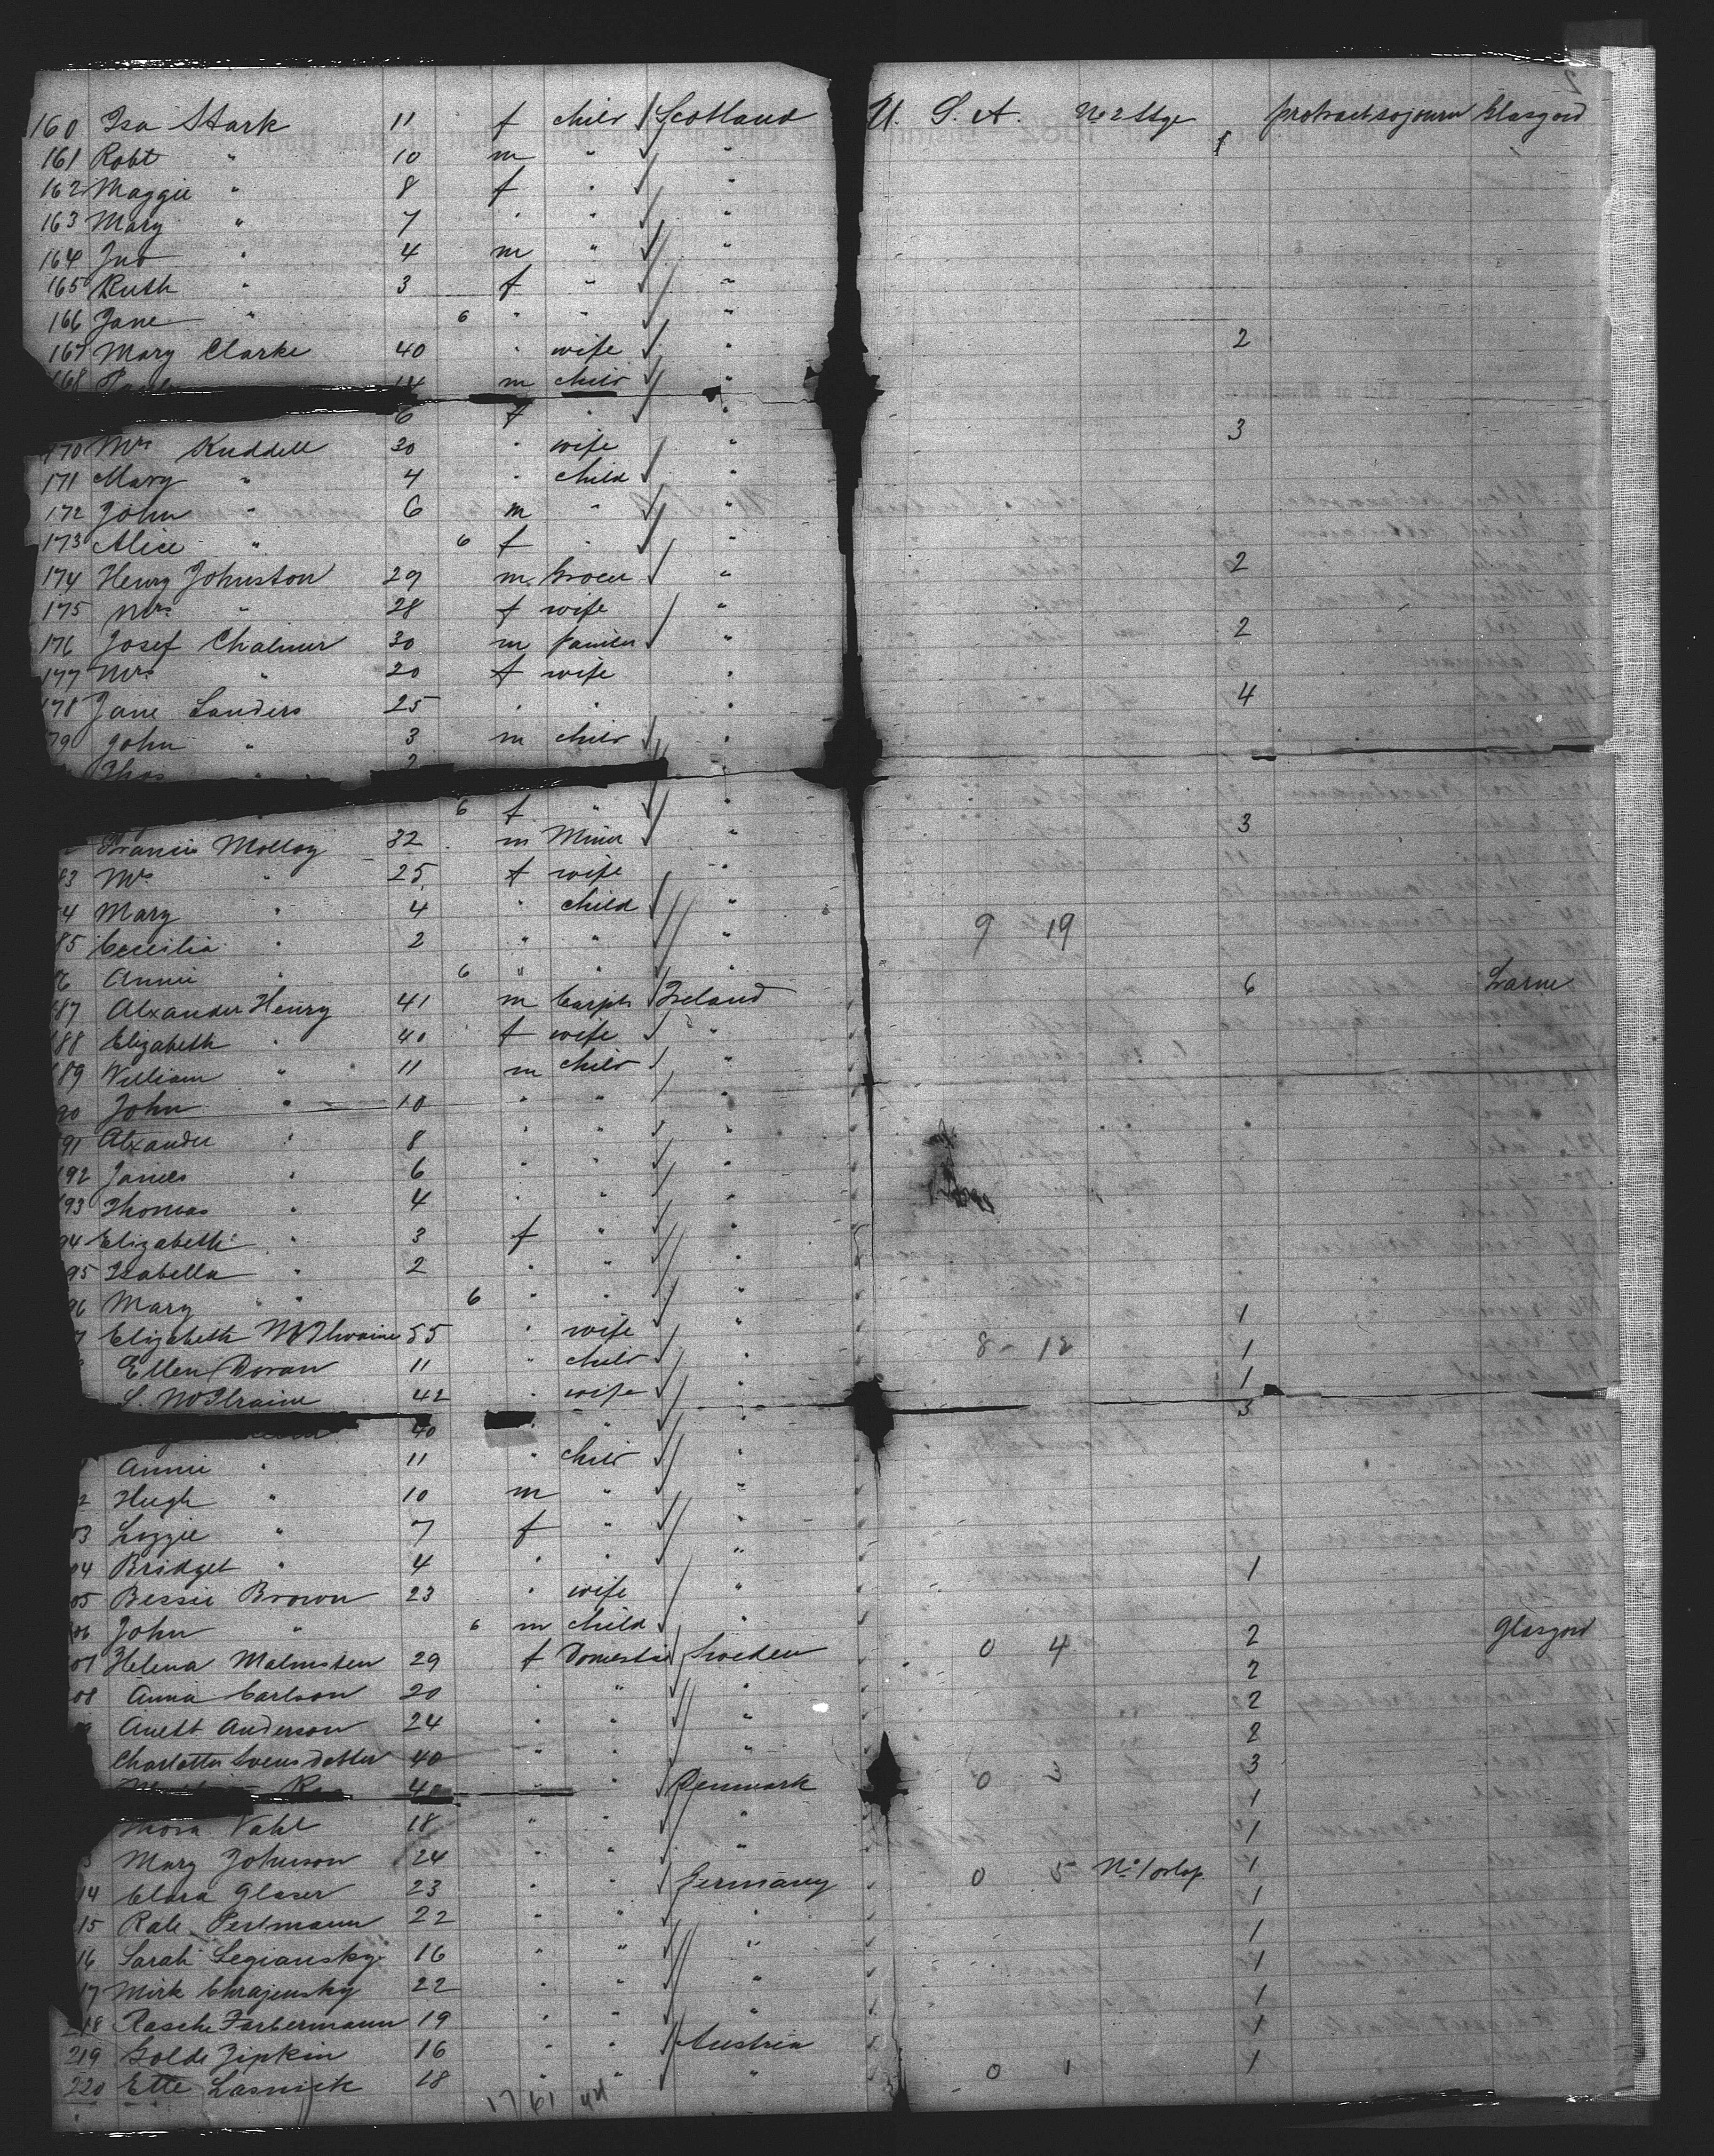 160 Isa Stark 11 f child Scotland U. S. A. No 2 Stge protract sojourn Glasgow
161 Robt " 10 m " "
162 Maggie " 8 f " "
163 Mary " 7 " " "
164 Jno " 4 m " "
165 Ruth " 3 f " "
166 Jane " 6 " " "
167 Mary Clarke 40 " wife " 2
168 14 m child "
6 f " "
170 Mrs Ruddell 30 " wife " 3
171 Mary " 4 " child "
172 John " 6 m " "
173 Alice " 6 f " "
174 Henry Johnston 29 m Grocer " 2
175 Mrs " 28 f wife "
176 Josef Chalmer 30 m " 2
177 Mrs " 20 f wife "
178 Jane Sanders 25 " " " 4
79 John " 3 m child "
Thos " 2
6 f " "
Francis Molloy 32 m Miner " 3
83 Mrs " 25 f wife "
4 Mary " 4 " child "
85 Cecilia " 2 " " " 9 19
6 Annie " 6 " " "
87 Alxander Henry 41 m Carptr Ireland 6 Larne
88 Elizabeth " 40 f wife "
89 William " 11 m child "
90 John " 10 " " "
91 Alxander " 8 " " "
192 James " 6 " " "
93 Thomas " 4 " " "
94 Elizabeth " 3 f " "
95 Isabella " 2 " " "
96 Mary " 6 " " "
7 Elizabeth McIlwaine 55 " wife " 1
Ellen Doran 11 " child " 8 - 12 1
S. McIlraine 42 " wife " 1
40 " " " 3
Annie " 11 " child "
2 Hugh " 10 m " "
03 Lizzie " 7 f " "
04 Bridget " 4 " " "
05 Bessie Brown 23 " wife " 1
06 John " 6 m child "
07 Helena Malmsten 29 f Domestic Sweden 0 4 2 Glasgow
08 Anna Carlson 20 " " " 2
Anett Anderson 24 " " " 2
Charlotta Svensdotter 40 " " " 2
40 " " Denmark 0 3 3
Thora Vahl 18 " " " 1
3 Mary Johnson 24 " " " 1
14 Clara Glaser 23 " " Germany 0 5 No 1 orlop 1
15 Rale Perlmann 22 " " " 1
16 Sarah Legiansky 16 " " " 1
17 Mirk Chrajensky 22 " " " 1
218 Rasche Farbermann 19 " " " 1
219 Golde Zipkin 16 " " Austria 1
220 Ette Lasnick 18 " " " 0 1 1
17 61 44